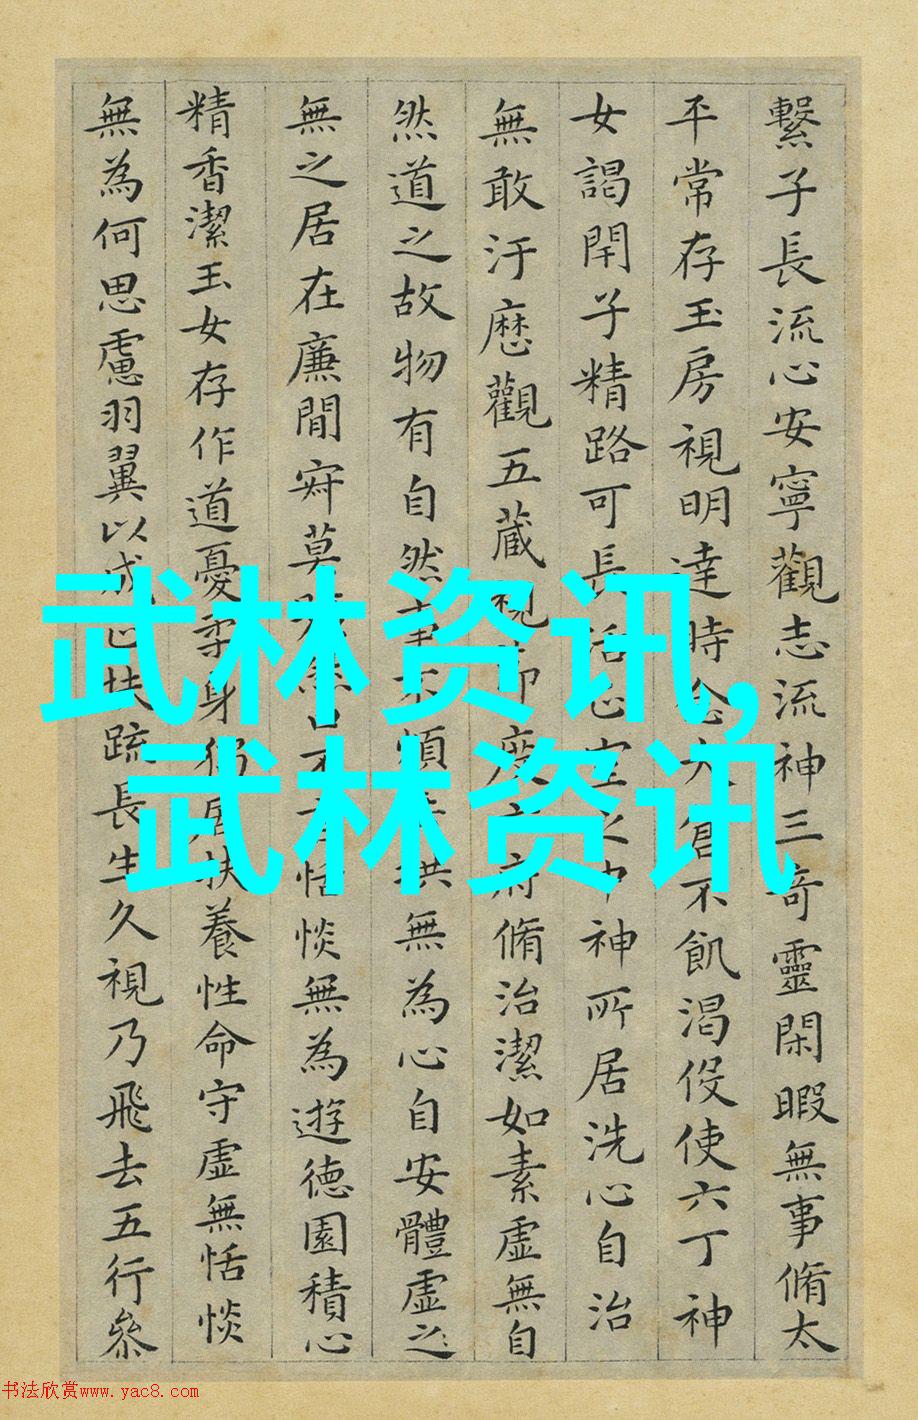 繫子長流心安寧觀志流神三奇靈閑暇無事脩太
平常存玉房視明達時念大倉不飢渴伇使六丁神
女謁閇子精路可長活正室之中神所居洗心自治
無敢汙歷觀五藏視節度六府脩治潔如素虛無自
然道之故物有自然事不煩垂拱無為心自安體虛之
無之居在廉間寂莫曠然口不言恬惔無為遊德園積心
精香潔玉女存作道憂柔身獨居扶養性命守虛無恬惔
無為何思慮羽翼以成正扶疏長生久視乃飛去五行參
武林资讯,
武林资讯
书法欣赏www.yac8.com